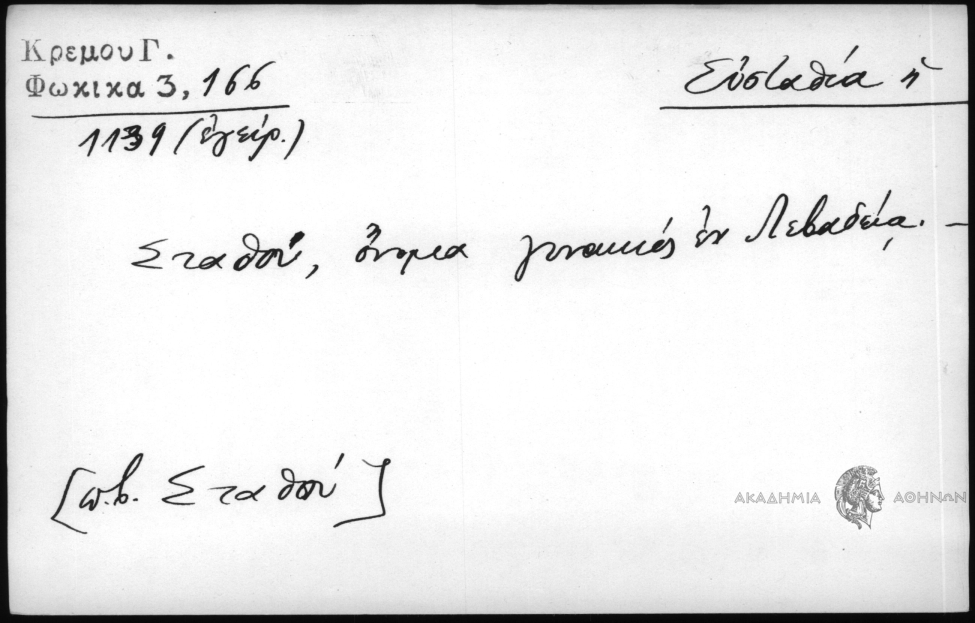 Κρεμου Γ.
Φωκικα 3, 166
Εὐσταθία ἡ
1139 (ἐγείρ.)
Σταθού, ὄνομα γυναικός ἐν Λεβαδείᾳ. –
[π.β. Σταθού]
ΑΚΑΔΗΜΙΑ ΑΘΗΝΩΝ